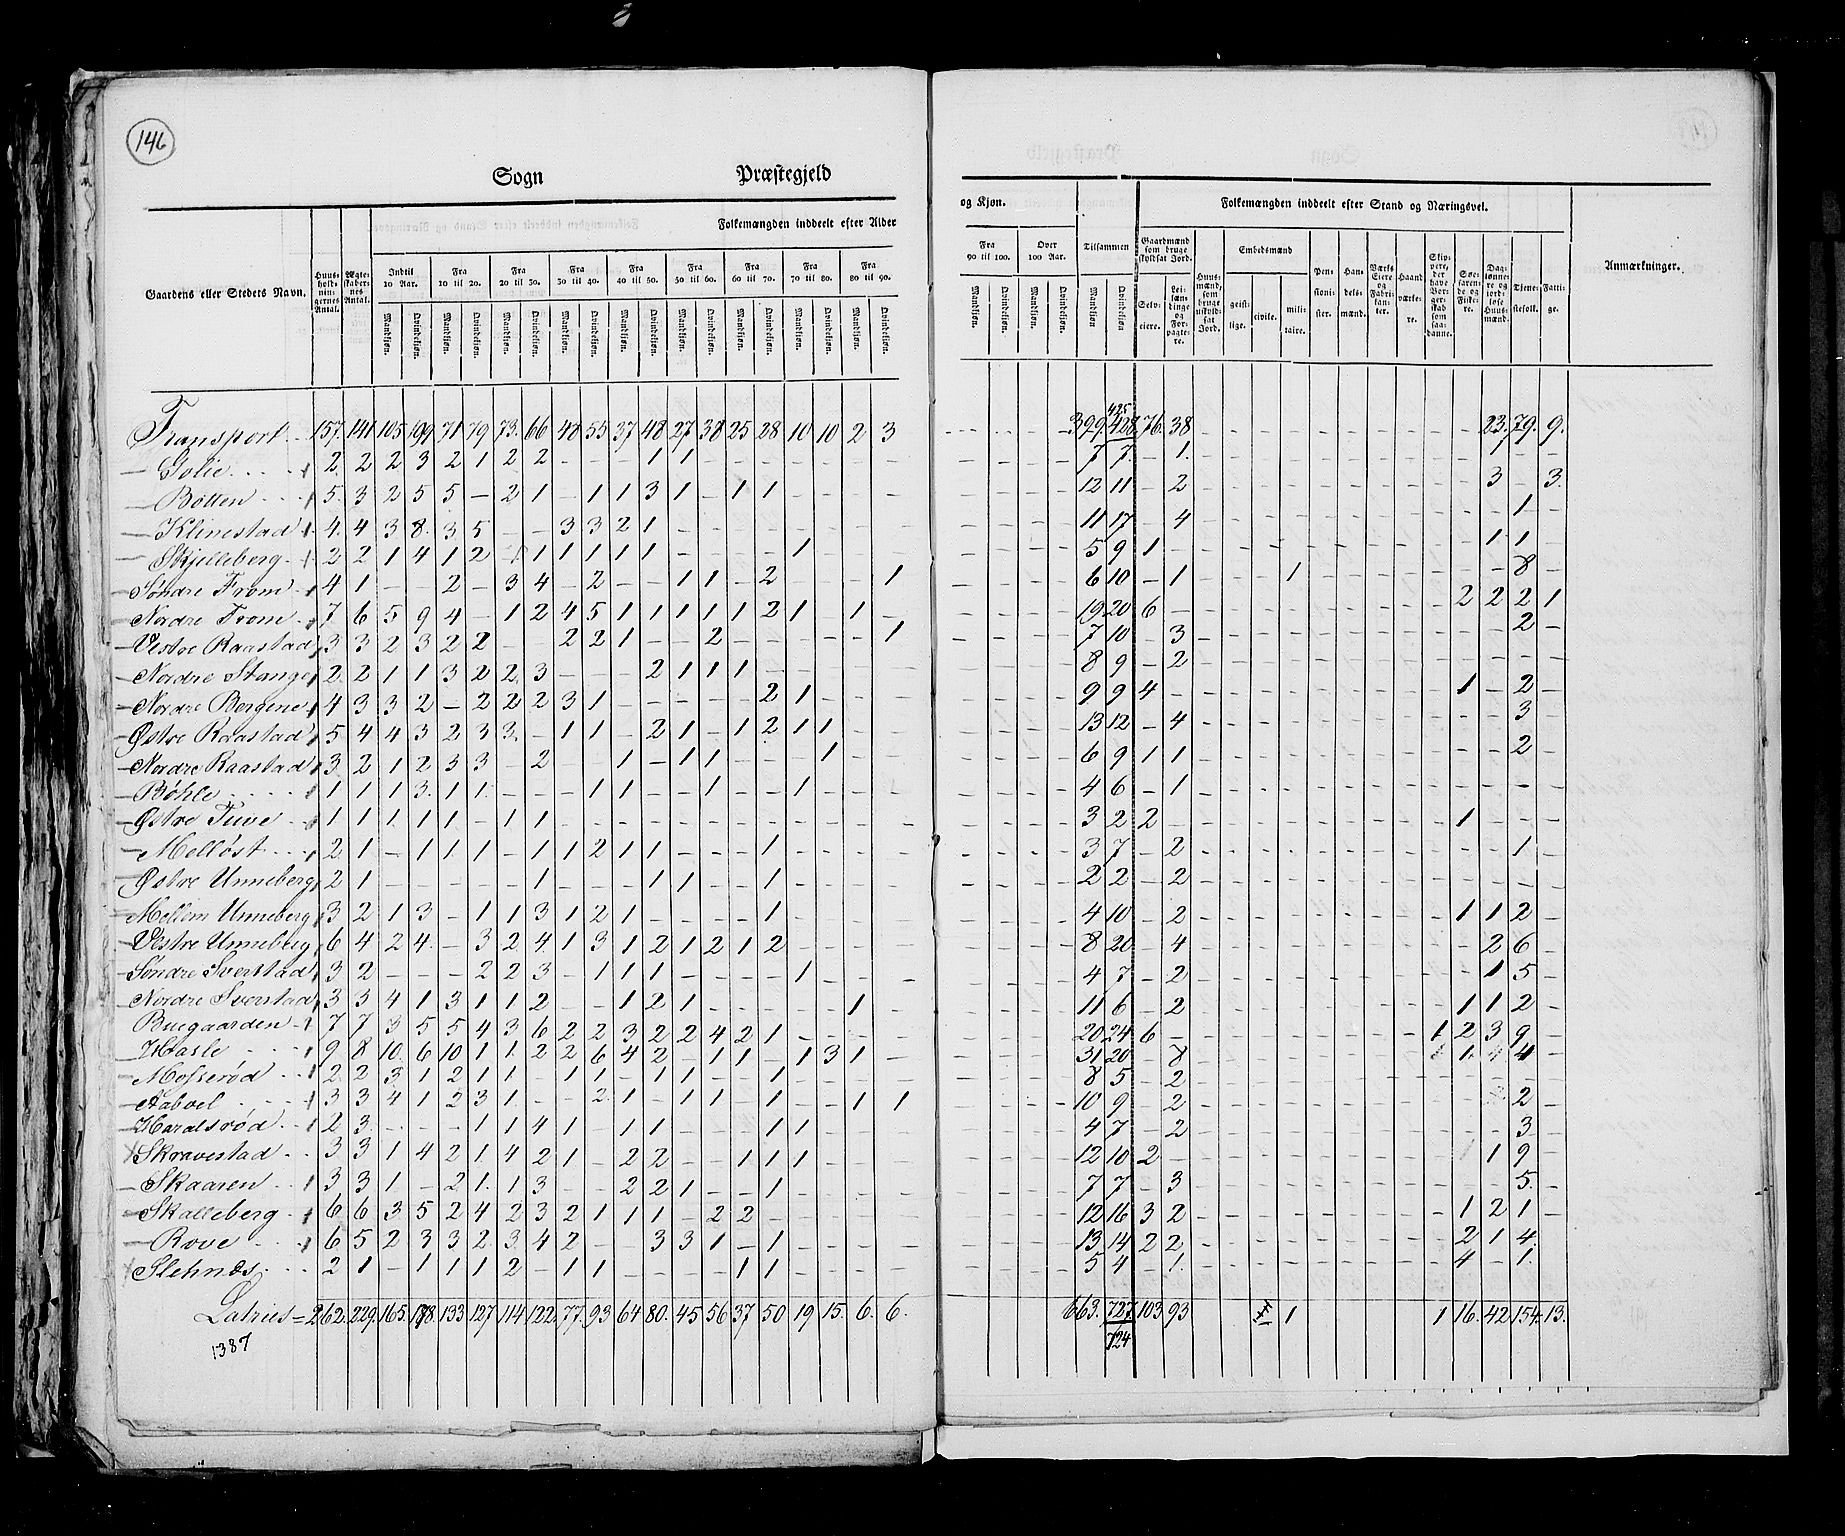 146
Sogn Præstegjeld
og Kjøn. Folkemængden inddeelt efter Stand og Næringsvei.
Folkemængden inddeelt efter Alder
Gaardens eller Stedets Navn. Huusholdningernes Antal. Ægteskabernes Antal. Indtil 10 Aar. Fra 10 til 20. Fra 20 til 30. Fra 30 til 40. Fra 40 til 50. Fra 50 til 60. Fra 60 til 70. Fra 70 til 80. Fra 80 til 90. Fra 90 til 100. Over 100 Aar. Tilsammen Gaardmænd som bruge skyldsat Jord. Huusmænd, som bruge uskyldsat Jord. Embedsmænd Pensionister. Handelsmænd. Værks Eiere og Fabrikanter. Haandværkere. Skippere, der have Borgerskab som saadanne. Søefarende og Fiskere. Dagslønnere og jordløse Huusmænd. Tjenestefolk. Fattige. Anmærkninger.
Mandkjøn. Qvindekjøn. Selveiere. Leilændinge og Forpagtere. geistlige. civile. militaire.
Transport 157. 141 105. 71 79 73. 66 48 55 37 48 27 38 25 28 10 10 2 3 329. 425 428. 76. 38 23. 79. 9.
Golie 2 2 2 3 2 1 2 2 - - - 1 1 7 7. - 1. 1 - -
Bötten 5. 3 2 5 5 - 2 1 - 1 1 3 1 - 1 1 - - - - 12 11 - 2 3 - 3.
Klinestad 4. 4 3 8. 3 5 - - 3 3 2 1 - - - - - - - - 11 17 - 4 - 1 -
Skjelleberg 2 2 1 4 1 2 - 1 1 1 1 1 - - - - 1 - - - 5 9 1 - 1 1 -
Söndre From 4 1 - - 2 - 3 4 - 2 - - 1 1 - 2 - - - 1 6 10 - 1 1 - - 8 -
Nordre From 7 6 5 9 4 - 1 2 4 5 1 1 1 1 1 2 1 - 1 - 19 20 6 - 2 2 2 1
Vestre Raastad 3 3 2 3 2 2 - - 2 2 1 - - 2 - - - - - 1 7 10 - 3 - - 2 -
Nordre Stange 2 2 1 1 3 2 2 3 - - - 2 1 1 1 - - - - - 8 9 - 2 - - - -
Nordre Bergene 4 3 3 2 - 2 2 2 3 1 - - - - - 2 1 - - - 9 9 4 - 1 - 2 -
Østre Raastad 5 4 4 3 2 3 3. - 1 1 - 2 1 - 1 2 1 1 - - 13 12 - 4 - - 3 -
Nordre Raastad 3 2 1 2 3 3 - 2 - - 1 - 1 1 - - - 1 - - 6 9 1 1 - - 2 -
Böhle 1 1 1 3. 1 1. - - - 1 1 - - 1 - - 1 - - - 4 6 - 1 - - - -
Østre Tuve 1 1 1. 1 1 - 1 1 - - - - - - - - - - - - 3 2 2 1 - - -
Melløst 2 1 - 1 1. 1 - 1 1 2 1 1 - - - 1 - - - - 3 7 - 2 - - 1 -
Østre Unneberg 2 1 - - - - - 1 - - - 1 1 - - 1 - - - - 2 2 - 2 - - - -
Mellem Unneberg 3 2 1 3 - 1 1 3 1 2 1 - - - - 1 - - - - 4 10 - 2 1 1 2 -
Vestre Unneberg 6 4 2 4. - 3 2 4 1 3 1 2 1 2 1 2 - - - - 8 20 - 4 2 6 -
Söndre Sverstad 3 2 - - - 2 2 3 - 1 1 1 - - - - 1 - - - 4 7 - 2 - 1 5 -
Nordre Sverstad 3 3 4 1 3 1 1 2 - - 1 2 1 - - - - - 1 - 11 6 - 2 1 1 2 -
Buegaarden 7 7 3 5 5 4 3 6 2 2 3 2 2 4 2 1 - - - - 20 24 6 - 1 2 3 9 -
Hasle 9 8 10. 6 10 1 1. 2 2 6 4 2 - 1 1 - 1 3 1 - 31 20 - 8 1 4 4 -
Mosserød 2 2 3 1 2 1 1 - 1 1 - 1 1 - - 1 - - - - 8 5 - 2 - - - -
Aabøl 3 3 4 1 2 3 1 - - 2 1 - 1 1 - 1 - - 1 1 10 9 - 2 2 -
Haralsrød 2 3 - - - 1 1 4 1 - 1 1 - - - 1 1 - - - 4 7 - 2 - - 3 -
Skravestad 3 3 1 4 2 1 4 2 1 - 2 2 - - 1 1 1 - - - 12 10 2 - 1 9 -
Skaaren 3 3 1 - 2 1. 1 3 - - 2 2 1 - - 1 - - - - 7 7 - 3 - - 5. -
Skalleberg 6 6 3 5 2 4 2 3 2 1 1 1 - 2 2 - - - - - 12 16 3 2 1 2 1 -
Rove 6 5 2 3 3 2 3 4 2 - - 3 3 1 - 1 - - - - 13 14 2 2 2 1 4. -
Slehnæs 2 1 - 1 1 1 2 - 1 1 - - - - 1 1 - - - - 5 4 - 1. 4 - 1. -
Latries = 262. 229. 165. 178. 133 127 114 122 77. 93 64 80. 45 56 37 50 19 15. 6. 6. 663. 727. 103 93 1 1 16. 42 154. 13.
724
1387